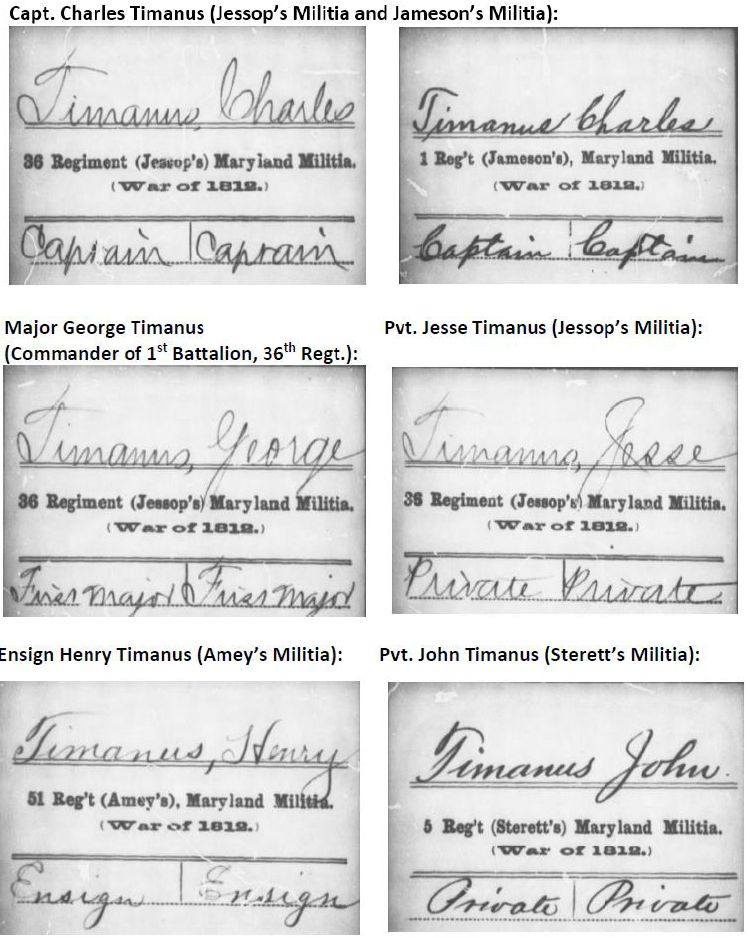 Capt. Charles Timanus (Jessop’s Militia and Jameson’s Militia):
Timanus, Charles
36 Regiment (Jessop's) Maryland Militia.
(War of 1812.)
Captain | Captain
Timanus Charles
1 Reg't (Jameson's), Maryland Militia.
(War of 1812.)
Captain | Captain
Major George Timanus
(Commander of 1st Battalion, 36th Regt.):
Timanus, George
36 Regiment (Jessop's) Maryland Militia.
(War of 1812.)
First Major | First Major
Pvt. Jesse Timanus (Jessop’s Militia):
Timanus, Jesse
36 Regiment (Jessop's) Maryland Militia.
(War of 1812.)
Private | Private
Ensign Henry Timanus (Amey’s Militia):
Timanus, Henry
51 Reg't (Amey's), Maryland Militia.
(War of 1812.)
Ensign | Ensign
Pvt. John Timanus (Sterett’s Militia):
Timanus John.
5 Reg't (Sterett's) Maryland Militia.
(War of 1812.)
Private | Private